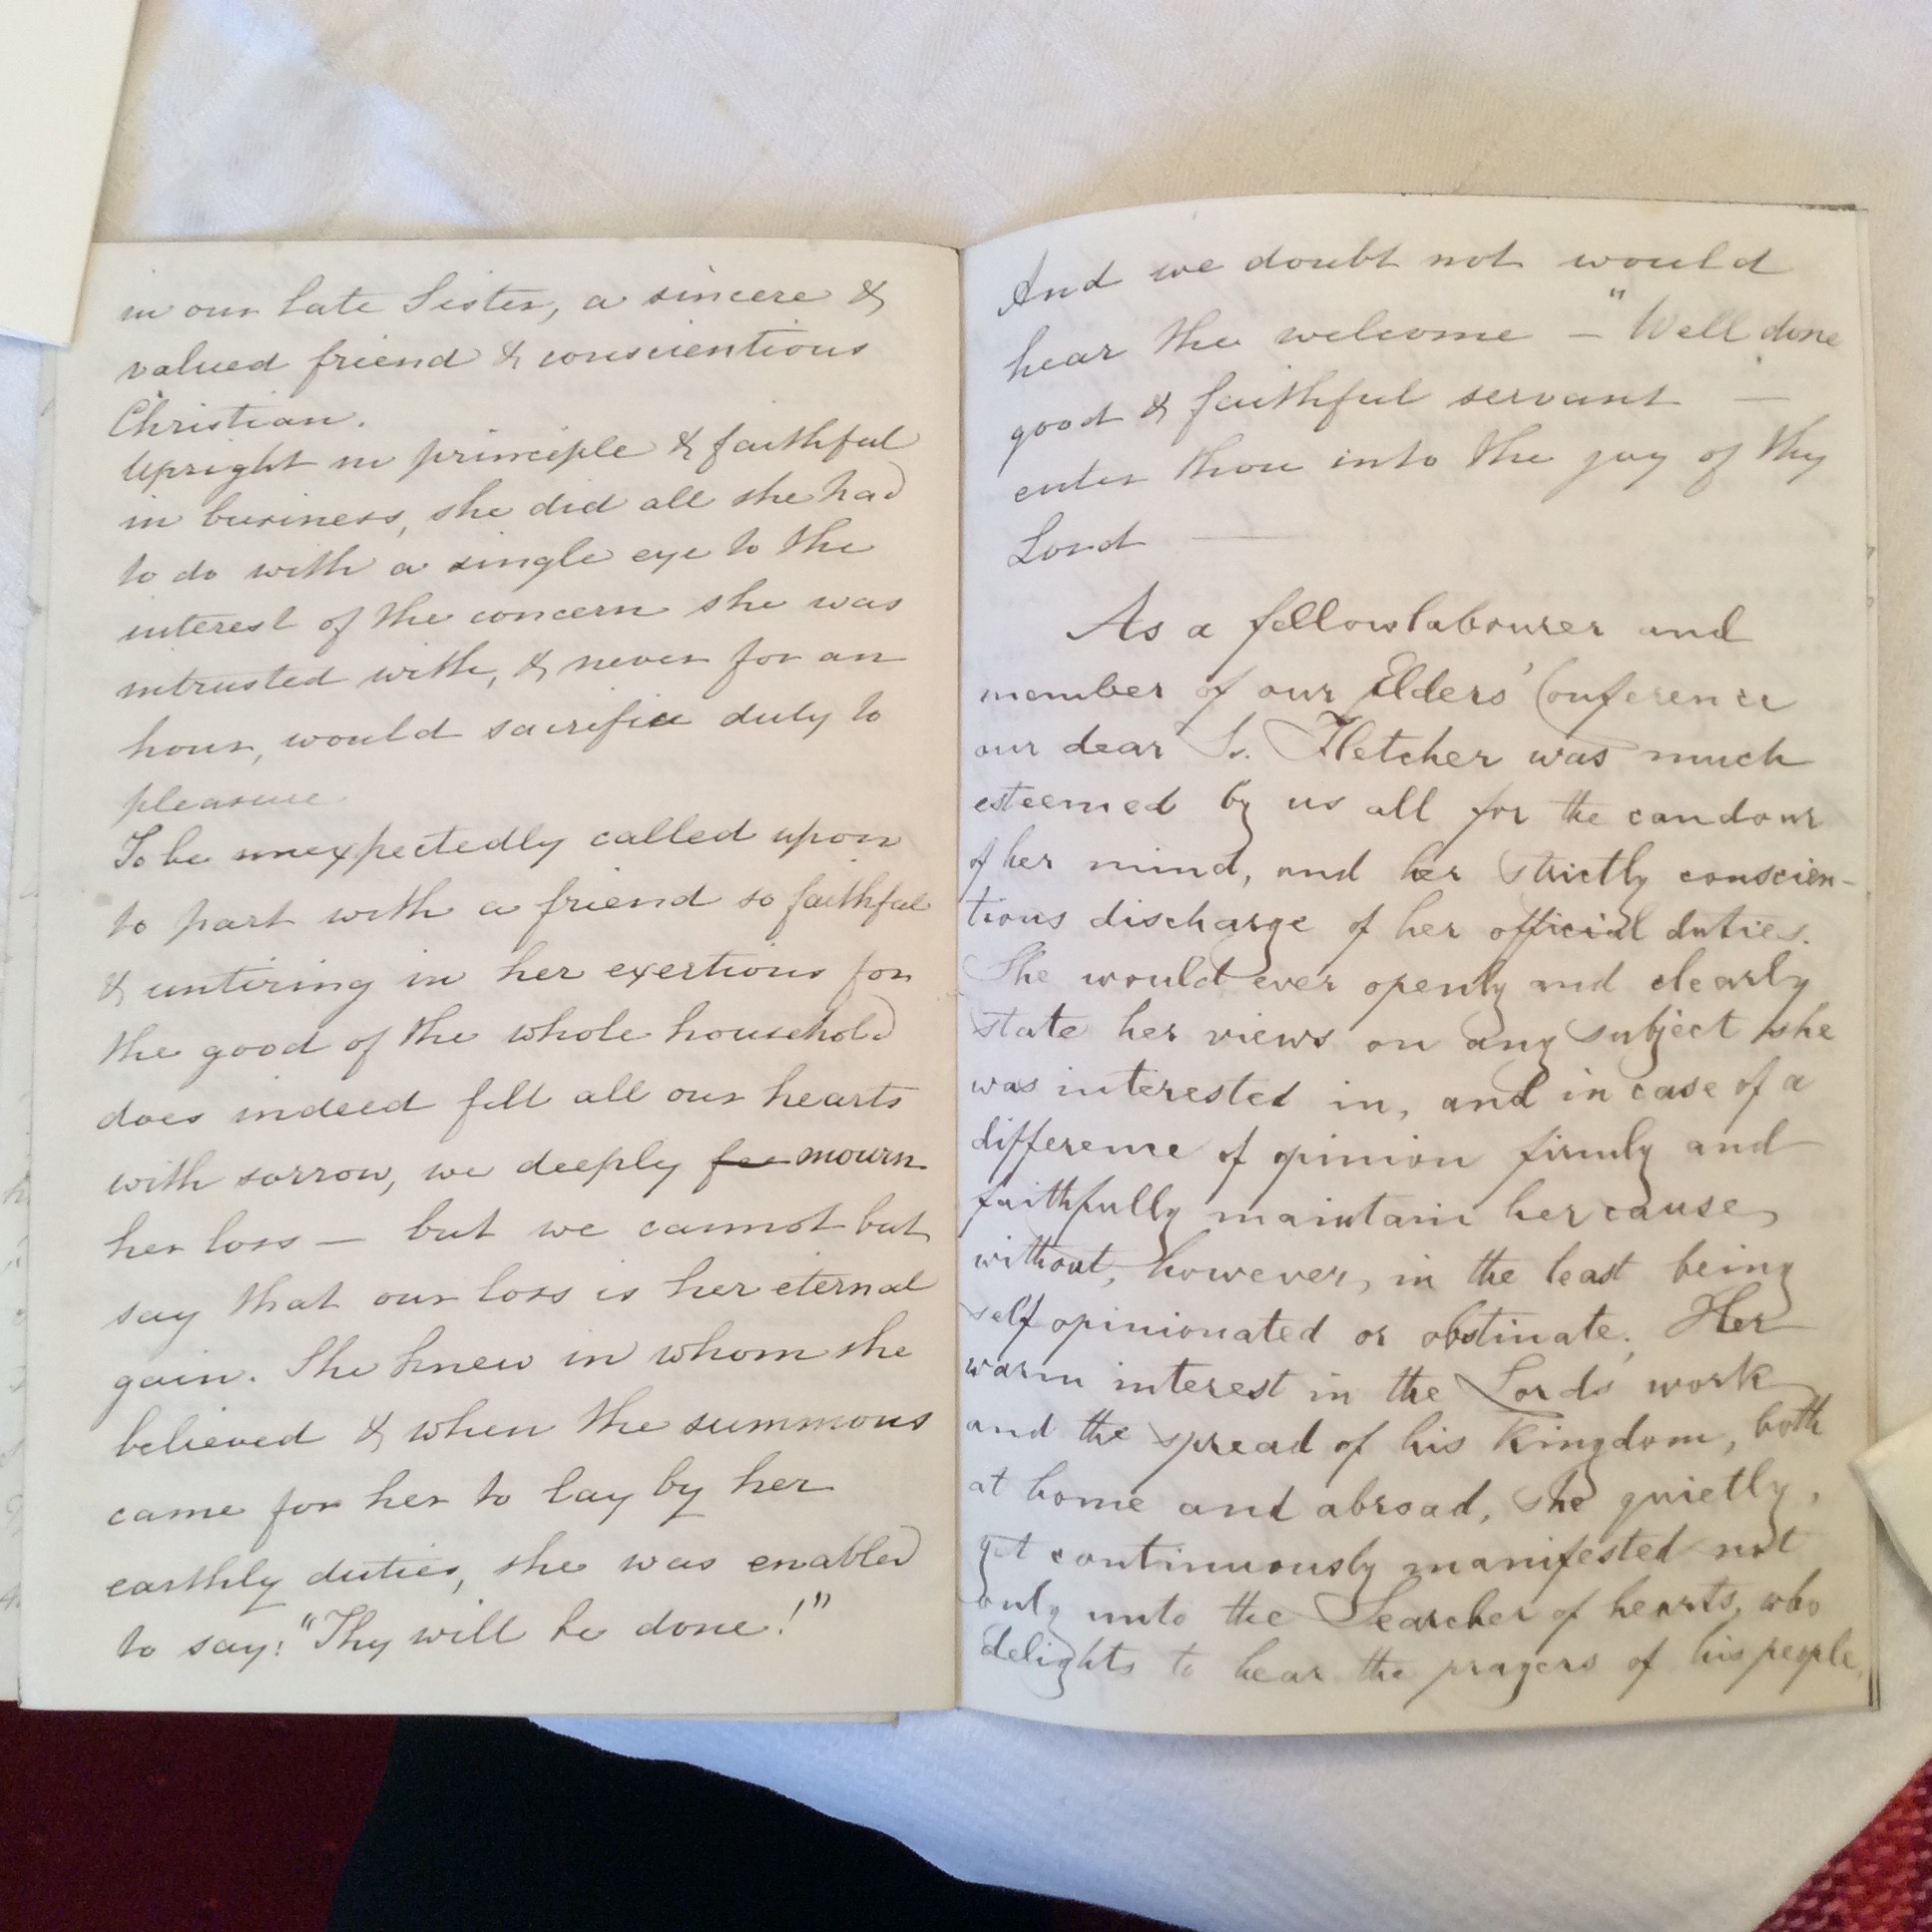 in our late Sister, a sincere &
valued friend & conscientious
Christian.
Upright in principle & faithful
in business, she did all she had
to do with a single eye to the
interest of the concern she was
intrusted with, & never for an
hour, would sacrifice duty to
pleasure
To be unexpectedly called upon
to part with a friend so faithful
& untiring in her exertions for
the good of the whole household
does indeed fill all our hearts
with sorrow, we deeply fee mourn
her loss — but we cannot but
say that our loss is her eternal
gain. She knew in whom she
believed & when the summons
came for her to lay by her
earthly duties, she was enabled
to say: "Thy will be done!"
And we doubt not would
hear the welcome — "Well done
good & faithful servant —
enter thou into the joy of thy
Lord —
As a fellowlabourer and
member of our Elders' Conference
our dear Sr. Fletcher was much
esteemed by us all for the candour
of her mind, and her strictly conscien-
tious discharge of her official duties.
She would ever openly and clearly
state her views on any subject she
was interested in, and in case of a
difference of opinion firmly and
faithfully maintain her cause,
without, however, in the least being
self opinionated or obstinate. Her
warm interest in the Lord's work
and the spread of his Kingdom, both
at home and abroad, she quietly,
yet continuously manifested not
only unto the Searcher of hearts, who
delights to hear the prayers of his people,